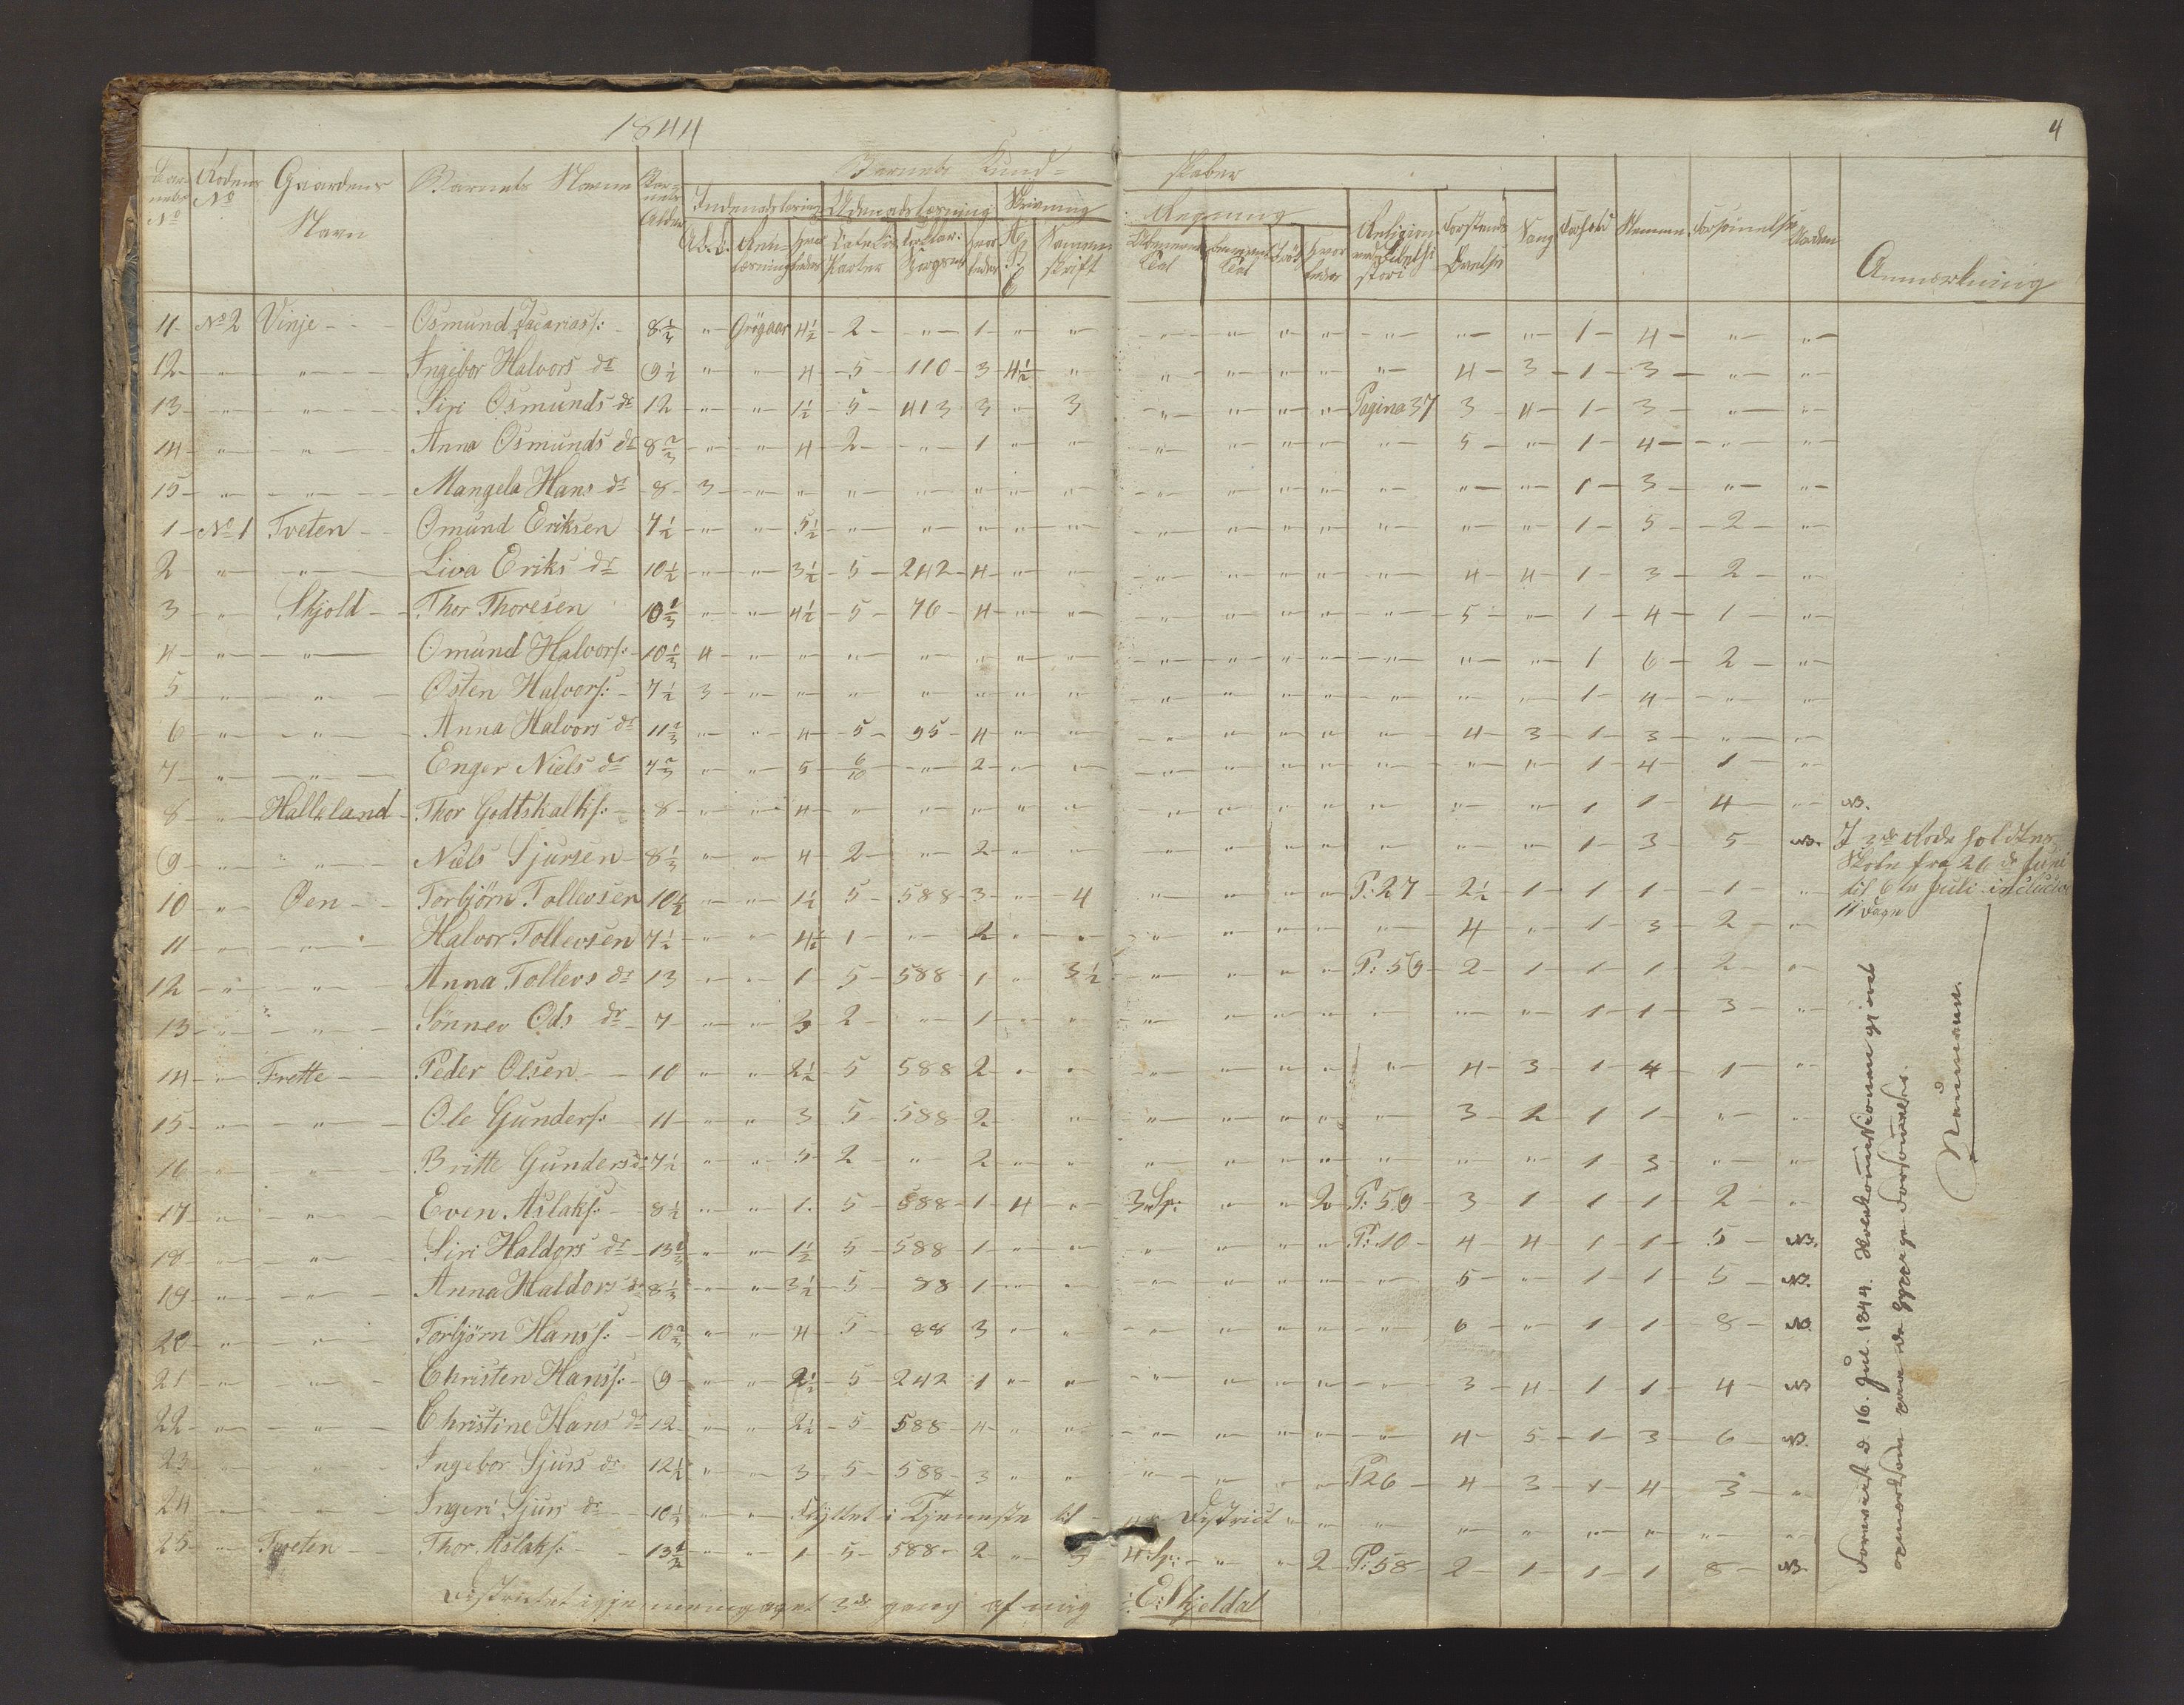 1844
4
Barnets Kund=
skaber
Barnets No Rodens No Gaardens Navn Barnets Navn Barnets Alder
Indenadslæsning Udenadslæsning Skrivning
Regning Religion Forstands Sang Forhold Forsømmelse Anmærkning
11 No 2 Vinje Osmund Zacariass: 8 1/3 " 4 1/2 2 " 1 " " " " " " " " " 1 4 " "
12 " " Ingebor Halvors dr 9 1/2 " " 4 5 110 3 4 1/2 " " " " " " 4 3 1 3 " "
13 " " Siri Osmunds dr 12 " " 1 1/2 5 413 3 " 3 " " " " Pagina 37 3 4 1 3 " "
14 " " Anna Osmunds dr 8 2/3 " " 4 2 " 1 " " " " " " " 5 " 1 4 " "
15 " " Mangela Hans dr 8 3 " " " " " " " " " " " " " " 1 3 " "
1 No 1 Tveten Omund Eriksen 7 1/2 " " 5 1/2 " " " " " " " " " " " " 1 5 2 "
2 " " Liva Eriks dr 10 1/2 " " 3 1/2 5 242 4 " " " " " " " 4 4 1 3 2 "
3 " Skjold Thor Thoresen 10 1/3 " " 4 1/2 5 76 4 " " " " " " " 5 " 1 4 1 "
4 " " Omund Halvors: 10 1/3 4 " " " " " " " " " " " " " " 1 6 2 "
5 " " Osten Halvors: 7 1/2 3 " " " " " " " " " " " " " " 1 4 " "
6 " " Anna Halvors dr 11 2/3 " " 4 5 95 4 " " " " " " " 4 3 1 3 " "
7 " " Enger Niels dr 7 2/3 " " 5 6/10 " 2 " " " " " " " " " 1 4 1 "
8 " Halleland Thor Godtskalks: 8 " " 4 " " " " " " " " " " " " 1 1 4 " NB.
9 " " Niels Sjursen 8 1/3 " " 4 2 " 2 " " " " " " " " " 1 3 5 NB. I 3de Rode holdtes
Skole fra 26de Juni
til 6te Juli inclusive
11 Dage
10 " Øen Torbjörn Tollevsen 10 1/2 " " 1 1/2 5 588 3 " 4 " " " " P: 27 2 1/2 1 1 1 1 "
11 " " Halvor Tollevsen 7 1/2 " " 4 1/2 1 " 2 " " " " " " " 4 " 1 3 2 "
12 " " Anna Tollevs dr 13 " " 1 5 588 1 " 3 1/2 " " " " P: 59 2 1 1 1 2 "
13 " " Sönnev Ods dr 7 " " 3 2 " 1 " " " " " " " " " 1 1 3 "
14 " Frette Peder Olsen 10 " " 2 1/2 5 588 2 " " " " " " " 4 3 1 4 1 "
15 " " Ole Gunders: 11 " " 3 5 588 2 " " " " " " 3 2 1 1 " "
16 " " Britte Gunders dr 7 1/2 " " 5 2 " 2 " " " " " " " " " 1 3 " "
17 " " Even Aslaks: 8 1/2 " " 1 5 588 1 4 " 3 Sp: " " 2 P: 59 3 1 1 1 2 "
18 " " Siri Haldors dr 13 1/3 " " 1 1/2 5 588 1 " " " " " " P: 10 4 4 1 1 5 NB.
19 " " Anna Haldors dr 8 1/3 " " 3 1/2 5 88 1 " " " " " " " 5 " 1 1 5 NB.
20 " " Torbjörn Hanss: 10 2/3 " " 4 5 88 3 " " " " " " " 6 " 1 1 8 NB.
21 " " Christen Hanss: 9 " " 2 1/2 5 242 1 " " " " " " " 3 4 1 1 4 NB
22 " " Christine Hans dr 12 " " 2 1/2 5 588 4 " " " " " " " 4 5 1 3 6 NB.
23 " " Ingebor Sjurs dr 12 1/2 " " 3 5 588 3 " " " " " " P 26 4 3 1 4 3 "
24 " " Ingeri Sjurs dr 10 1/3 " " Flyttet i Tjeneste til District " " " " " " " " "
25 " Tveten Thor Aslaks: 13 1/2 " " 1 5 588 2 " 3 4 Sp: " " 2 P: 58 2 1 1 1 8 NB.
Districtet igjennemgaaet 3de gang af mig E: Skjeldal
Foreviist d. 16. Jul. 1844. Skolekommissionen gjøres
opmærksom paa de hyppige Forsømmelser.
Naumann.